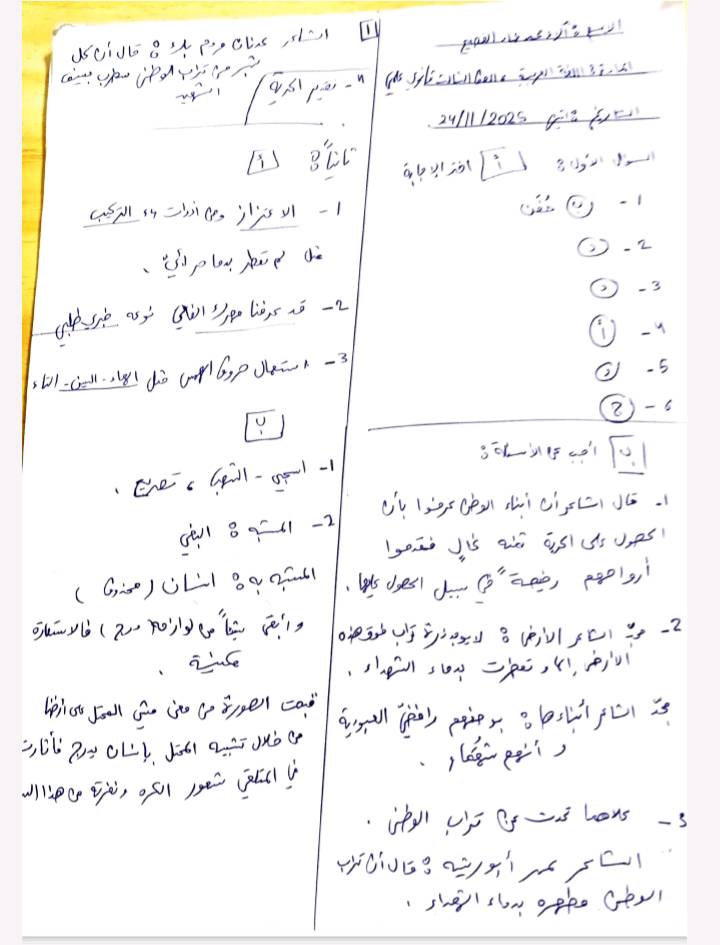 المادة: اللغة العربية
التاريخ: 24/11/2025
السؤال الأول: أ اختر الإجابة
1 - ب
2 - د
3 - د
4 - أ
5 - د
6 - ج
ب أجب عن الأسئلة:
1- قال الشاعر أن أبناء الوطن عرفوا بأن
الحصول على الحرية ثمنه غالٍ فقدموا
أرواحهم رخيصة في سبيل الحصول عليها.
2- الشاعر الأرض: لا يوجد ذرة تراب فوق هذه
الأرض إلا و تعطرت بدماء الشهداء.
مجّد الشاعر أبناءها: بوصفهم رافضيّ العبودية
و أنهم شهداء.
3- كلاهما تحدث عن تراب الوطن.
الشاعر عمر أبو ريشة: قال أن تراب
الوطن مطهر بدماء الشهداء.
1 الشاعر عدنان مردم بك: قال أن كل
شبر من تراب الوطن بسيف
الشهيد
4- الحرية
ثانياً: أ
1- الاعتزاز ومن أدوات التركيب
مثل لم تعطر بدما حر أبيّ.
2- قد عرفنا مهرك الغالي نوعه خبري طلبي
3- استعمال حروف الهمس مثل الهاء - السين - التاء
ب
1- اسحبي - الشهبا، تصريع.
2- المشبه: البغي
المشبه به: إنسان (محذوف)
وأبقى شيئاً من لوازمه درج) فالاستعارة
مكنية.
قبحت الصورة من معنى مشي المحتل على أرضنا
من خلال تشبيه المحتل بإنسان يدرج فأثارت
في المتلقي شعور الكره ونفرته من هذا